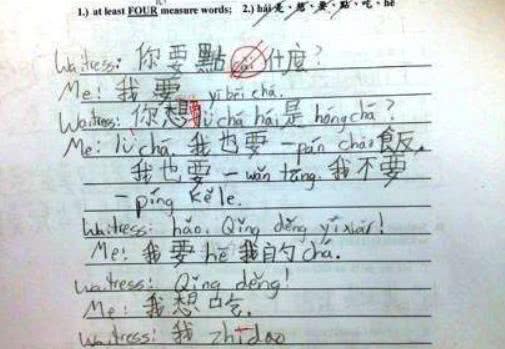 1.) at least FOUR measure words; 2.) hái 是、想、要、點、吃、hē
Waitress: 你要點 什麼?
Me: 我要 yì bēi chá.
Waitress: 你想要lǜ chá hái 是 hóng chá?
Me: lǜ chá. 我也要一pán chǎo飯.
我也要一wǎn tāng. 我不要
一píng kělè.
Waitress: hǎo. Qǐng děng yí xiàr!
Me: 我要 hē 我的 chá.
Waitress: Qǐng děng!
Me: 我想吃.
Waitress: 我 zhīdao